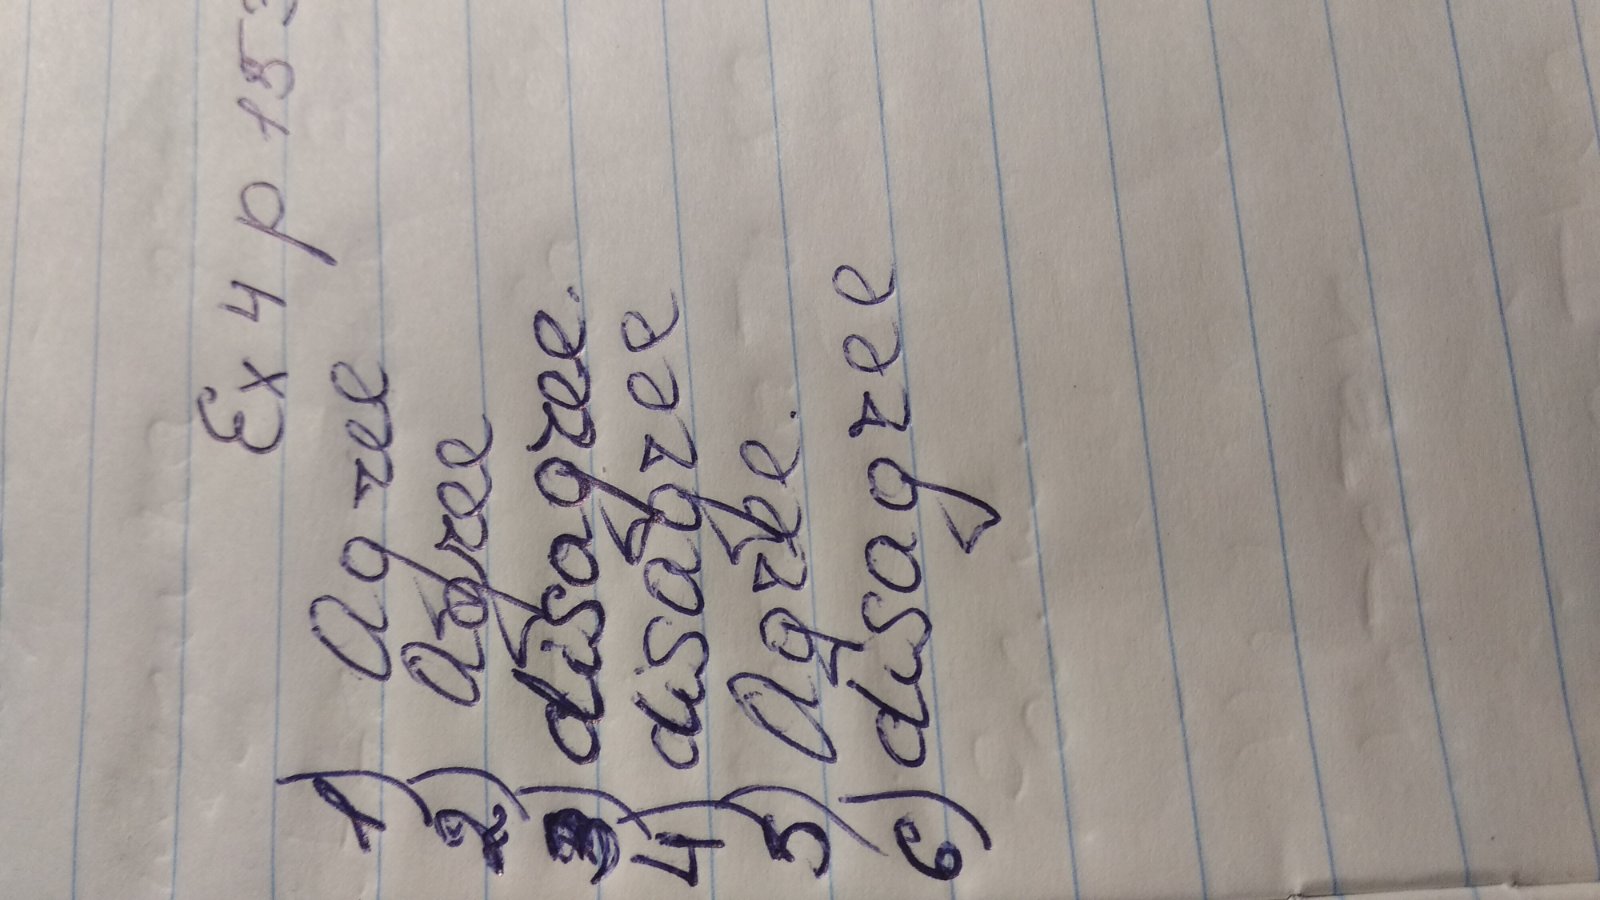 Ex 4 p 153
1) agree
2) agree
3) disagree.
4) disagree
5) agree.
6) disagree